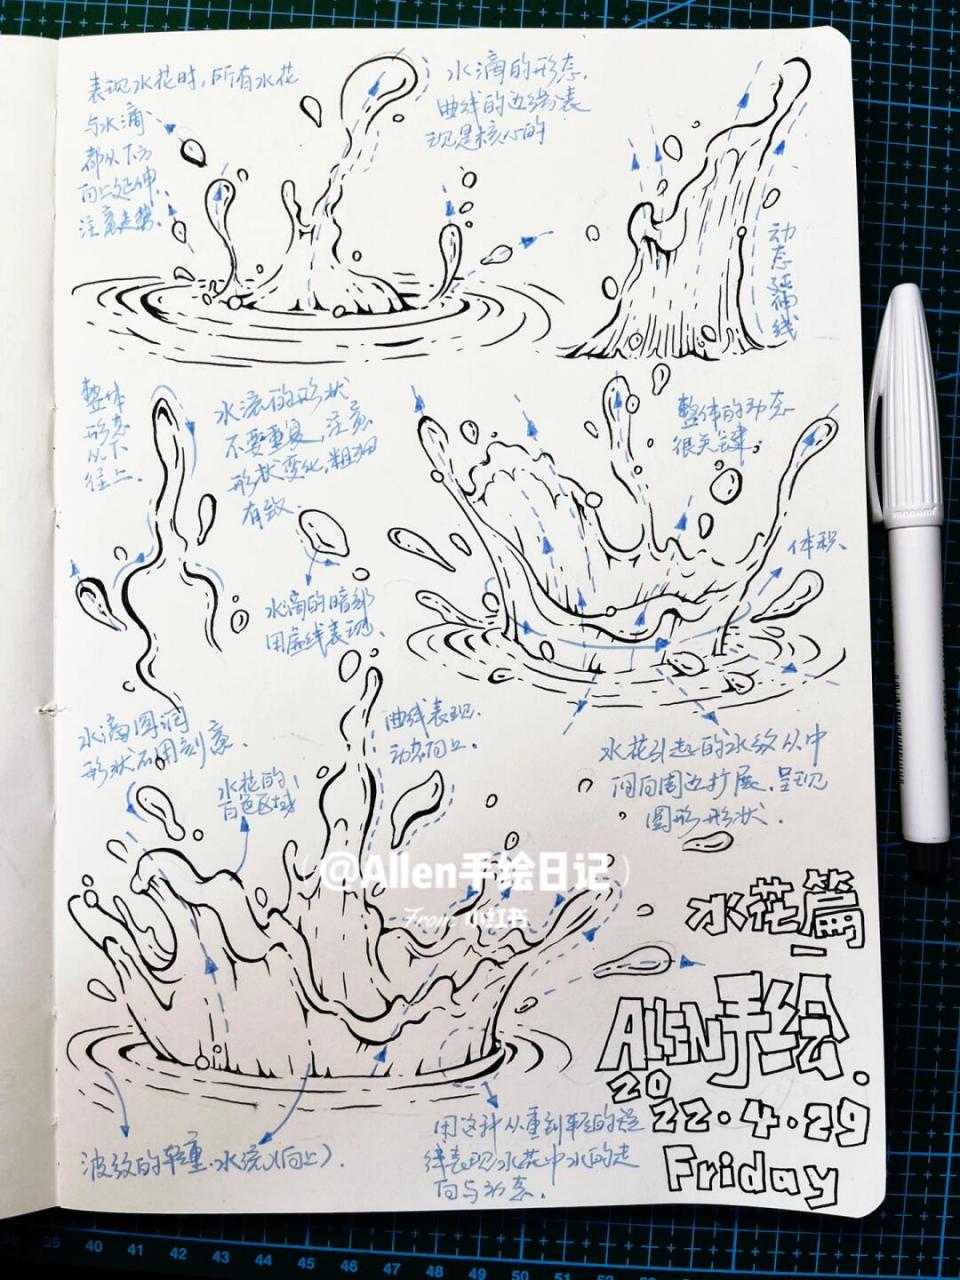 表现水花时,所有水花
与水滴
都从下方
向上延伸.
注意走势.
水滴的形态.
曲线的边缘表
现是核心的
动态延伸线
整体
形态
从下
往上.
水滚的形状
不要重复,注意
形状变化,粗细
有致.
整体的动态
很关键.
体积.
水滴的暗部
用虚线表现.
水滴圆润
形状不用刻意.
水花的
白色区域
曲线表现.
动态向上.
水花引起的水纹从中
间向周边扩展.呈现
圆形形状.
@Allen手绘日记
From 小红书
水花篇
ALLEN手绘.
2022.4.29
Friday
波纹的轻重.水流(向上).
用这种从重到轻的线
条表现水花中水的走
向与动态.
monami
39 40 41 42 43 44 45 46 47 48 49 50 51 52 53